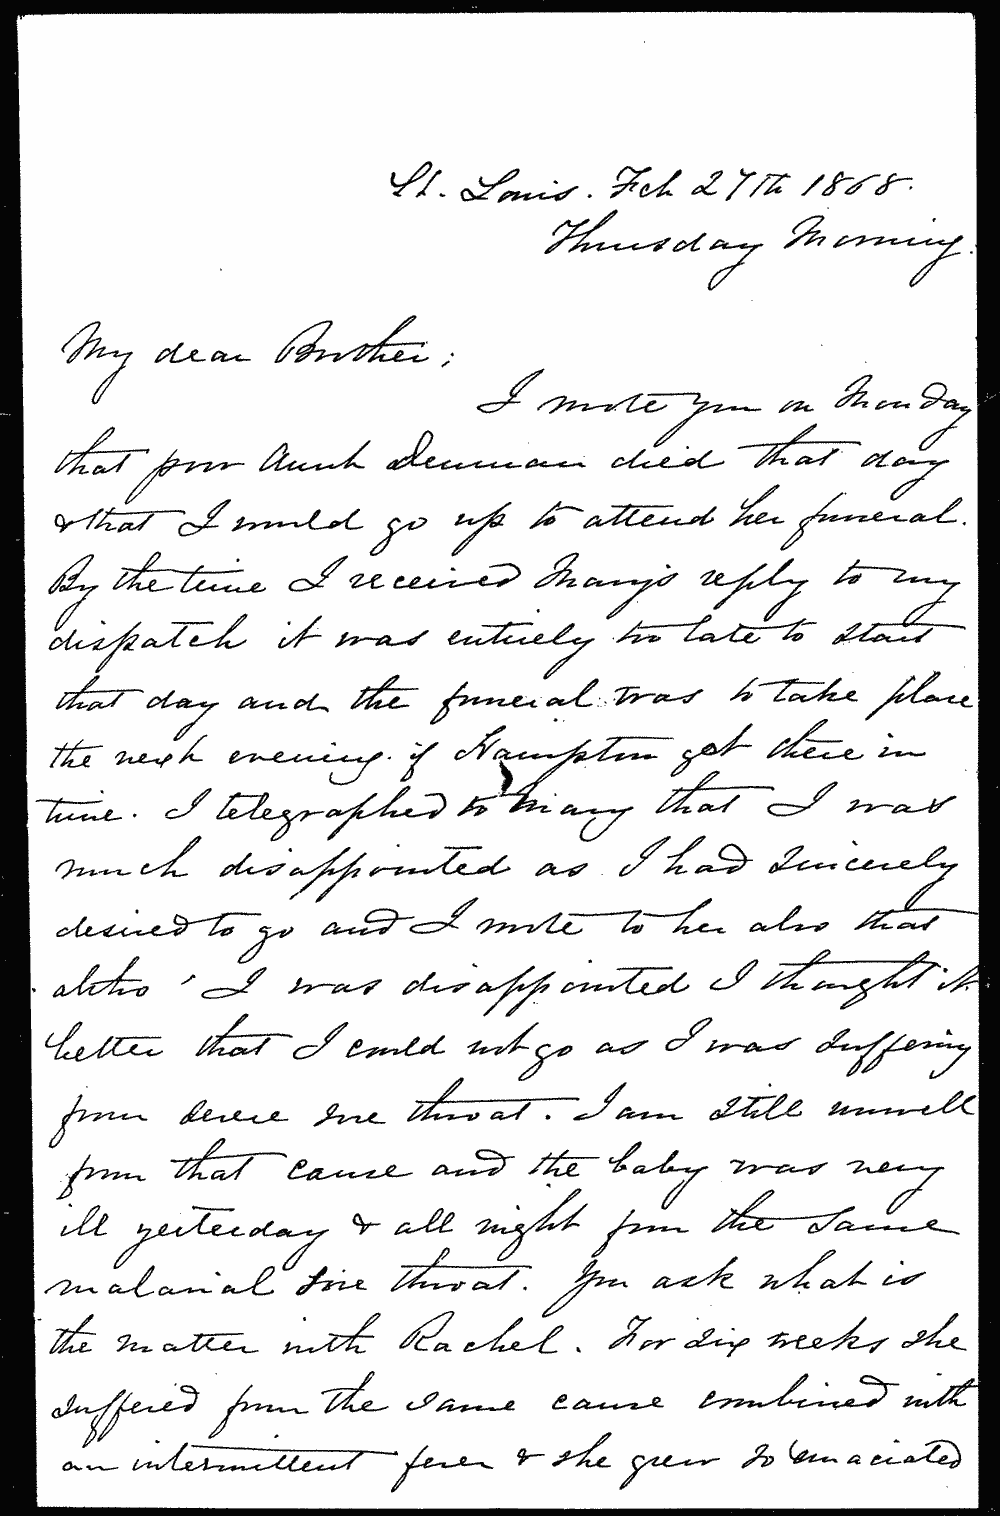 St. Louis. Feb 27th 1868.
Thursday Morning.
My dear Brother;
I wrote you on Monday
that poor Aunt Denman died that day
& that I would go up to attend her funeral.
By the time I received Mary's reply to my
dispatch it was entirely too late to start
that day and the funeral was to take place
the next evening. if Hampton got there in
time. I telegraphed to Mary that I was
much disappointed as I had sincerely
desired to go and I wrote to her also that
altho' I was disappointed I thought it
better that I could not go as I was suffering
from severe sore throat. I am still unwell
from that cause and the baby was very
ill yesterday & all night from the same
malarial sore throat. You ask what is
the matter with Rachel. For six weeks she
suffered from the same cause combined with
an intermittent fever & she grew so emaciated